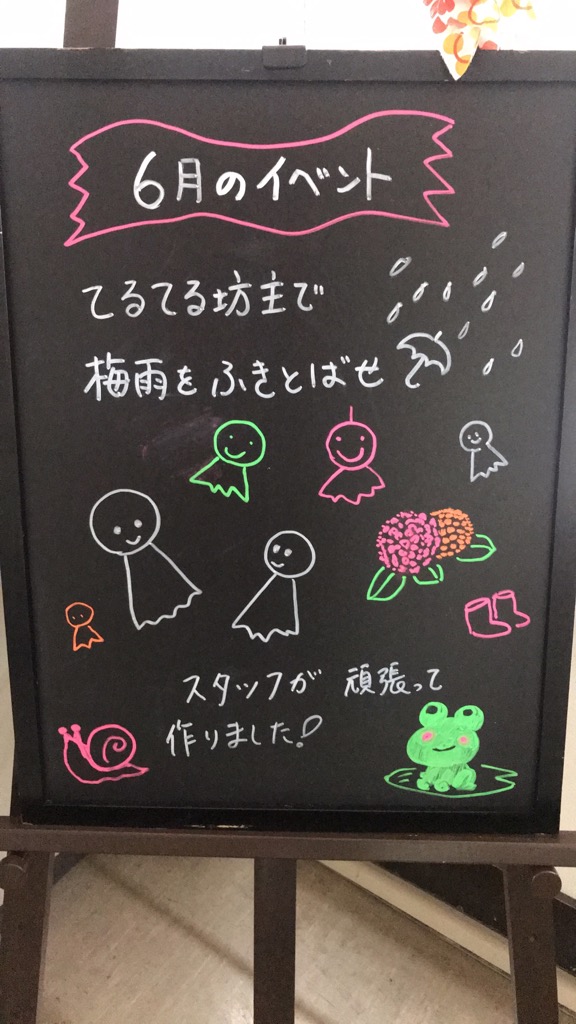 6月のイベント
てるてる坊主で
梅雨をふきとばせ
スタッフが 頑張って
作りました!